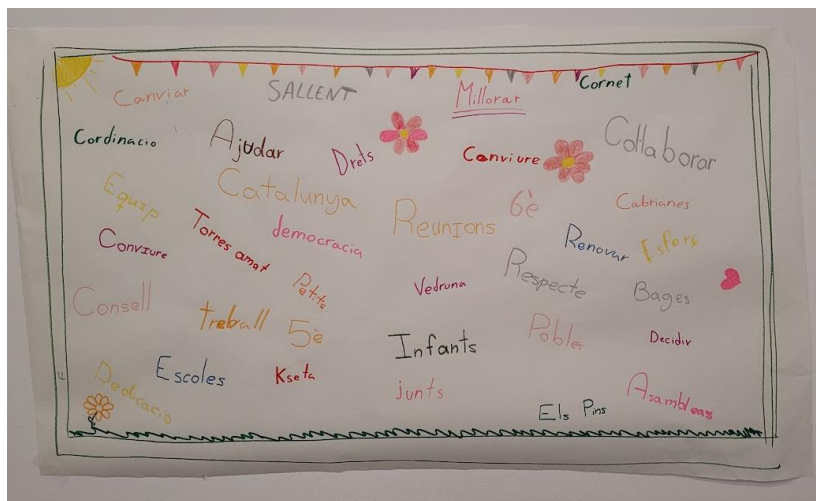 Canviar
SALLENT
Millorar
Cornet
Cordinacio
Ajudar
Drets
Conviure
Col·laborar
Equip
Catalunya
Reunions
6è
Cabrianes
Conviure
Torres amat
democracia
Renovar
Esforç
Petits
Vedruna
Respecte
Bages
Consell
treball
5è
Infants
Pobles
Decidir
Dedicacio
Escoles
Kseta
junts
Els Pins
Asambleas